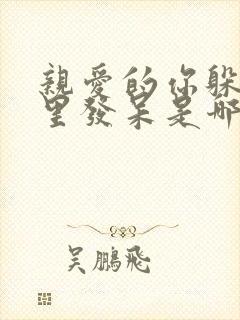 親愛的你躲
里發呆是哪
吴鵬飛